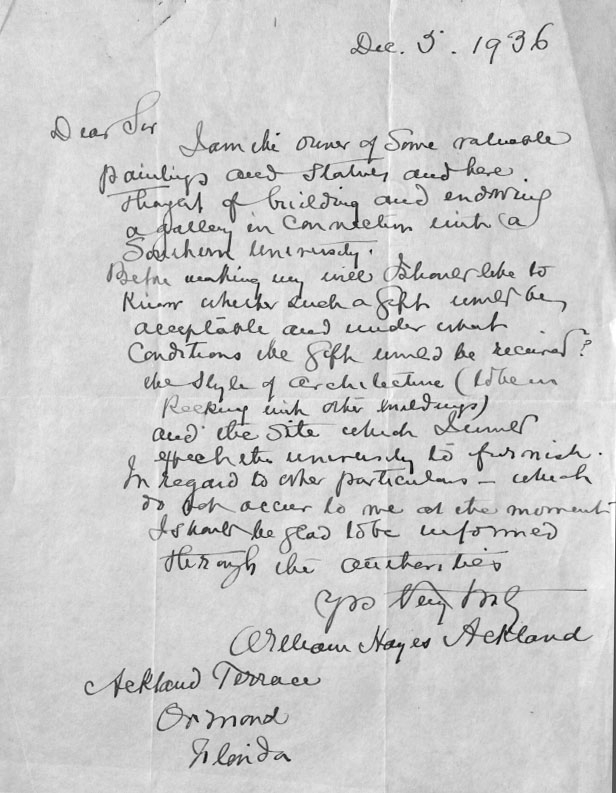 Dec. 5. 1936
Dear Sir
I am the owner of some valuable
paintings and statues and have
thought of building and endowing
a gallery in connection with a
Southern University.
Before making my will I should like to
Know whether such a gift would be
acceptable and under what
Conditions the gift would be received?
the style of architecture (to be in
Keeping with other buildings)
and the site which I would
expect the university to furnish.
In regard to other particulars – which
do not occur to me at the moment
I should be glad to be informed
through the authorities
Yrs Very truly
William Hayes Ackland
Ackland Terrace
Ormond
Florida